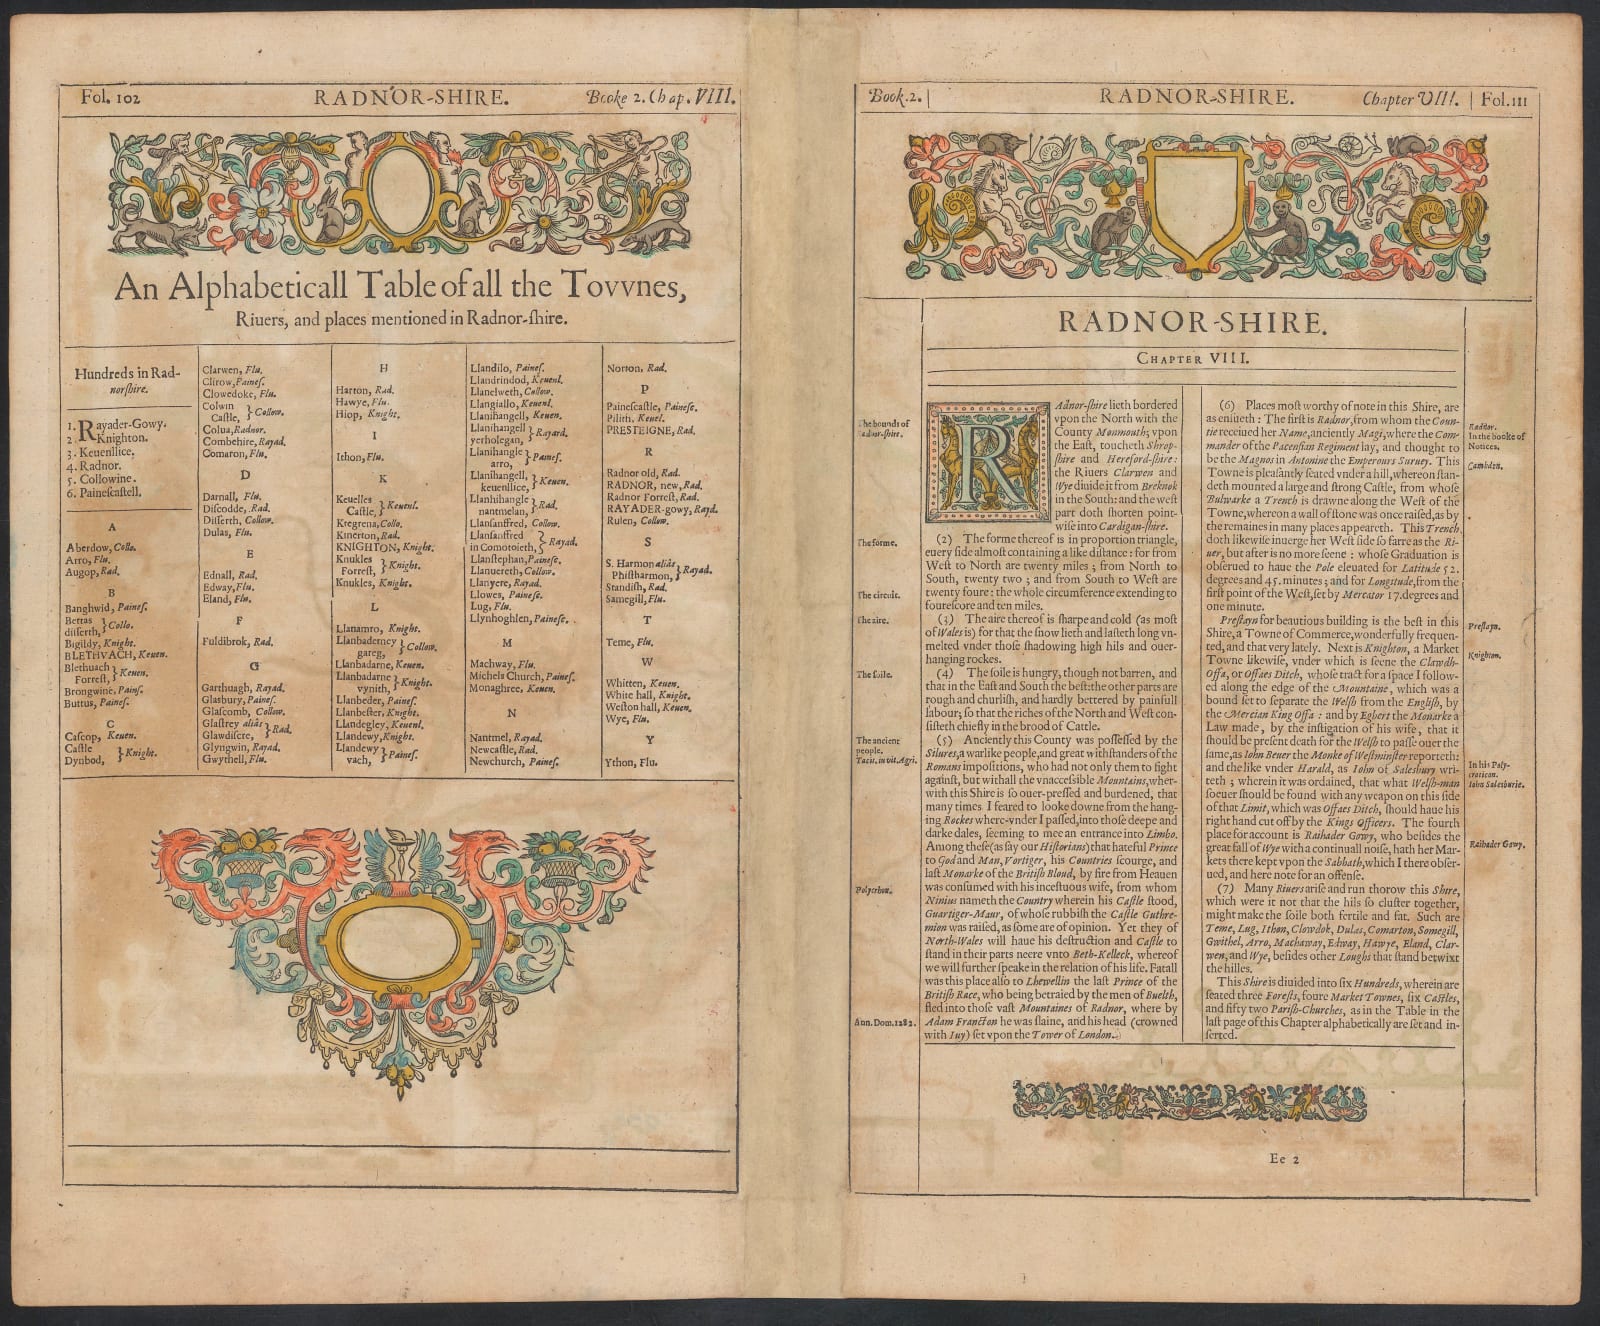 Fol. 102 RADNOR-SHIRE. Booke 2. Chap. VIII.
An Alphabeticall Table of all the Tovvnes,
Riuers, and places mentioned in Radnor-ſhire.
Hundreds in Rad-
norſhire.
1. Rayader-Gowy.
2. Knighton.
3. Keuenllice.
4. Radnor.
5. Collowine.
6. Paineſcaſtell.
A
Aberdow, Collo.
Arro, Flu.
Augop, Rad.
B
Banghwid, Paineſ.
Bettas
diſſerth, } Collo.
Bigildy, Knight.
BLETHVACH, Keuen.
Blethuach
Forreſt, } Keuen.
Brongwine, Painſ.
Buttus, Paineſ.
C
Caſcop, Keuen.
Caſtle
Dynbod, } Knight.
Clarwen, Flu.
Clirow, Paineſ.
Clowedoke, Flu.
Colwin
Caſtle, } Collow.
Colua, Radnor.
Combehire, Rayad.
Comaron, Flu.
D
Darnall, Flu.
Diſcodde, Rad.
Diſſerth, Collow.
Dulas, Flu.
E
Ednall, Rad.
Edway, Flu.
Eland, Flu.
F
Fuldibrok, Rad.
G
Garthuagh, Rayad.
Glasbury, Paineſ.
Glaſcomb, Collow.
Glaſtrey aliàs
Glawdiſtre, } Rad.
Glyngwin, Rayad.
Gwythell, Flu.
H
Harton, Rad.
Hawye, Flu.
Hiop, Knight.
I
Ithon, Flu.
K
Keuelles
Caſtle, } Keuenl.
Kregrena, Collo.
Kinerton, Rad.
KNIGHTON, Knight.
Knukles
Forreſt, } Knight.
Knukles, Knight.
L
Llanamro, Knight.
Llanbaderney
gareg, } Collow.
Llanbadarne, Keuen.
Llanbadarne
vynith, } Knight.
Llanbeder, Paineſ.
Llanbeſter, Knight.
Llandegley, Keuenl.
Llandewy, Knight.
Llandewy
vach, } Paineſ.
Llandilo, Paineſ.
Llandrindod, Keuenl.
Llanelweth, Collow.
Llangiallo, Keuenl.
Llanihangell, Keuen.
Llanihangell
yerholegan, } Rayard.
Llanihangle
arro, } Paineſ.
Llanihangell,
keuenllice, } Keuen.
Llanhihangle
nantmelan, } Rad.
Llanſanffred, Collow.
Llanſanffred
in Comotoieth, } Rayad.
Llanſtephan, Paineſe.
Llanuereth, Collow.
Llanyere, Rayad.
Llowes, Paineſe.
Lug, Flu.
Llynhoghlen, Paineſe.
M
Machway, Flu.
Michels Church, Paineſ.
Monaghree, Keuen.
N
Nantmel, Rayad.
Newcaſtle, Rad.
Newchurch, Paineſ.
Norton, Rad.
P
Paineſcaſtle, Paineſe.
Pilith, Keuel.
PRESTEIGNE, Rad.
R
Radnor old, Rad.
RADNOR, new, Rad.
Radnor Forreſt, Rad.
RAYADER-gowy, Rayd.
Rulen, Collow.
S
S. Harmon aliàs
Philſtharmon, } Rayad.
Standiſh, Rad.
Samegill, Flu.
T
Teme, Flu.
W
Whitten, Keuen.
White hall, Knight.
Weſton hall, Keuen.
Wye, Flu.
Y
Ython, Flu.
Book. 2. RADNOR-SHIRE. Chapter VIII. Fol. 111
RADNOR-SHIRE.
CHAPTER VIII.
The bounds of
Radnor-ſhire.
RAdnor-ſhire lieth bordered
vpon the North with the
County Monmouth; vpon
the Eaſt, toucheth Shrop-
ſhire and Hereford-ſhire:
the Riuers Clarwen and
Wye diuide it from Breknok
in the South: and the weſt
part doth ſhorten point-
wiſe into Cardigan-ſhire.
The forme.
(2) The forme thereof is in proportion triangle,
euery ſide almoſt containing a like diſtance: for from
Weſt to North are twenty miles; from North to
South, twenty two; and from South to Weſt are
twenty foure: the whole circumference extending to
foureſcore and ten miles.
The circuit.
The aire.
(3) The aire thereof is ſharpe and cold (as moſt
of Wales is) for that the ſnow lieth and laſteth long vn-
melted vnder thoſe ſhadowing high hils and ouer-
hanging rockes.
The ſoile.
(4) The ſoile is hungry, though not barren, and
that in the Eaſt and South the beſt: the other parts are
rough and churliſh, and hardly bettered by painfull
labour; ſo that the riches of the North and Weſt con-
ſiſteth chiefly in the brood of Cattle.
The ancient
people.
Tacit. in vit. Agri.
(5) Anciently this County was poſſeſſed by the
Silures, a warlike people, and great withſtanders of the
Romans impoſitions, who had not only them to fight
againſt, but withall the vnacceſſible Mountains, wher-
with this Shire is ſo ouer-preſſed and burdened, that
many times I feared to looke downe from the hang-
ing Rockes where-vnder I paſſed, into thoſe deepe and
darke dales, ſeeming to mee an entrance into Limbo.
Among theſe (as ſay our Hiſtorians) that hateful Prince
to God and Man, Vortiger, his Countries ſcourge, and
laſt Monarke of the Britiſh Bloud, by fire from Heauen
was conſumed with his inceſtuous wife, from whom
Ninius nameth the Country wherein his Caſtle ſtood,
Guartiger-Maur, of whoſe rubbiſh the Caſtle Guthre-
mion was raiſed, as ſome are of opinion. Yet they of
North-Wales will haue his deſtruction and Caſtle to
ſtand in their parts neere vnto Beth-Kelleck, whereof
we will further ſpeake in the relation of his life. Fatall
was this place alſo to Lhewellin the laſt Prince of the
Britiſh Race, who being betraied by the men of Buelth,
fled into thoſe vaſt Mountaines of Radnor, where by
Adam Francton he was ſlaine, and his head (crowned
with Iuy) ſet vpon the Tower of London.
Polycrhon.
Ann. Dom. 1282.
(6) Places moſt worthy of note in this Shire, are
as enſueth: The firſt is Radnor, from whom the Coun-
tie receiued her Name, anciently Magi, where the Com-
mander of the Pacenſian Regiment lay, and thought to
be the Magnos in Antonine the Emperours Suruey. This
Towne is pleaſantly ſeated vnder a hill, whereon ſtan-
deth mounted a large and ſtrong Caſtle, from whoſe
Bulwarke a Trench is drawne along the Weſt of the
Towne, whereon a wall of ſtone was once raiſed, as by
the remaines in many places appeareth. This Trench
doth likewiſe inuerge her Weſt ſide ſo farre as the Ri-
uer, but after is no more ſeene: whoſe Graduation is
obſerued to haue the Pole eleuated for Latitude 52.
degrees and 45. minutes; and for Longitude, from the
firſt point of the Weſt, ſet by Mercator 17. degrees and
one minute.
Radnor.
In the booke of
Notices.
Cambden.
Preſtayn for beautious building is the beſt in this
Shire, a Towne of Commerce, wonderfully frequen-
ted, and that very lately. Next is Knighton, a Market
Towne likewiſe, vnder which is ſeene the Clawdh-
Offa, or Offaes Ditch, whoſe tract for a ſpace I follow-
ed along the edge of the Mountaine, which was a
bound ſet to ſeparate the Welſh from the Engliſh, by
the Mercian King Offa: and by Egbert the Monarke a
Law made, by the inſtigation of his wife, that it
ſhould be preſent death for the Welſh to paſſe ouer the
ſame, as Iohn Beuer the Monke of Weſtminſter reporteth:
and the like vnder Harald, as Iohn of Salesbury wri-
teth; wherein it was ordained, that what Welſh-man
ſoeuer ſhould be found with any weapon on this ſide
of that Limit, which was Offaes Ditch, ſhould haue his
right hand cut off by the Kings Officers. The fourth
place for account is Raihader Gowy, who beſides the
great fall of Wye with a continuall noiſe, hath her Mar-
kets there kept vpon the Sabbath, which I there obſer-
ued, and here note for an offenſe.
Preſtayn.
Knighton.
In his Poly-
craticon.
Iohn Salesburie.
Raihader Gowy.
(7) Many Riuers ariſe and run thorow this Shire,
which were it not that the hils ſo cluſter together,
might make the ſoile both fertile and fat. Such are
Teme, Lug, Ithon, Clowdok, Dulas, Comarton, Somegill,
Gwithel, Arro, Machaway, Edway, Hawye, Eland, Clar-
wen, and Wye, beſides other Loughs that ſtand betwixt
the hilles.
This Shire is diuided into ſix Hundreds, wherein are
ſeated three Foreſts, foure Market Townes, ſix Caſtles,
and fifty two Pariſh-Churches, as in the Table in the
laſt page of this Chapter alphabetically are ſet and in-
ſerted.
Ee 2